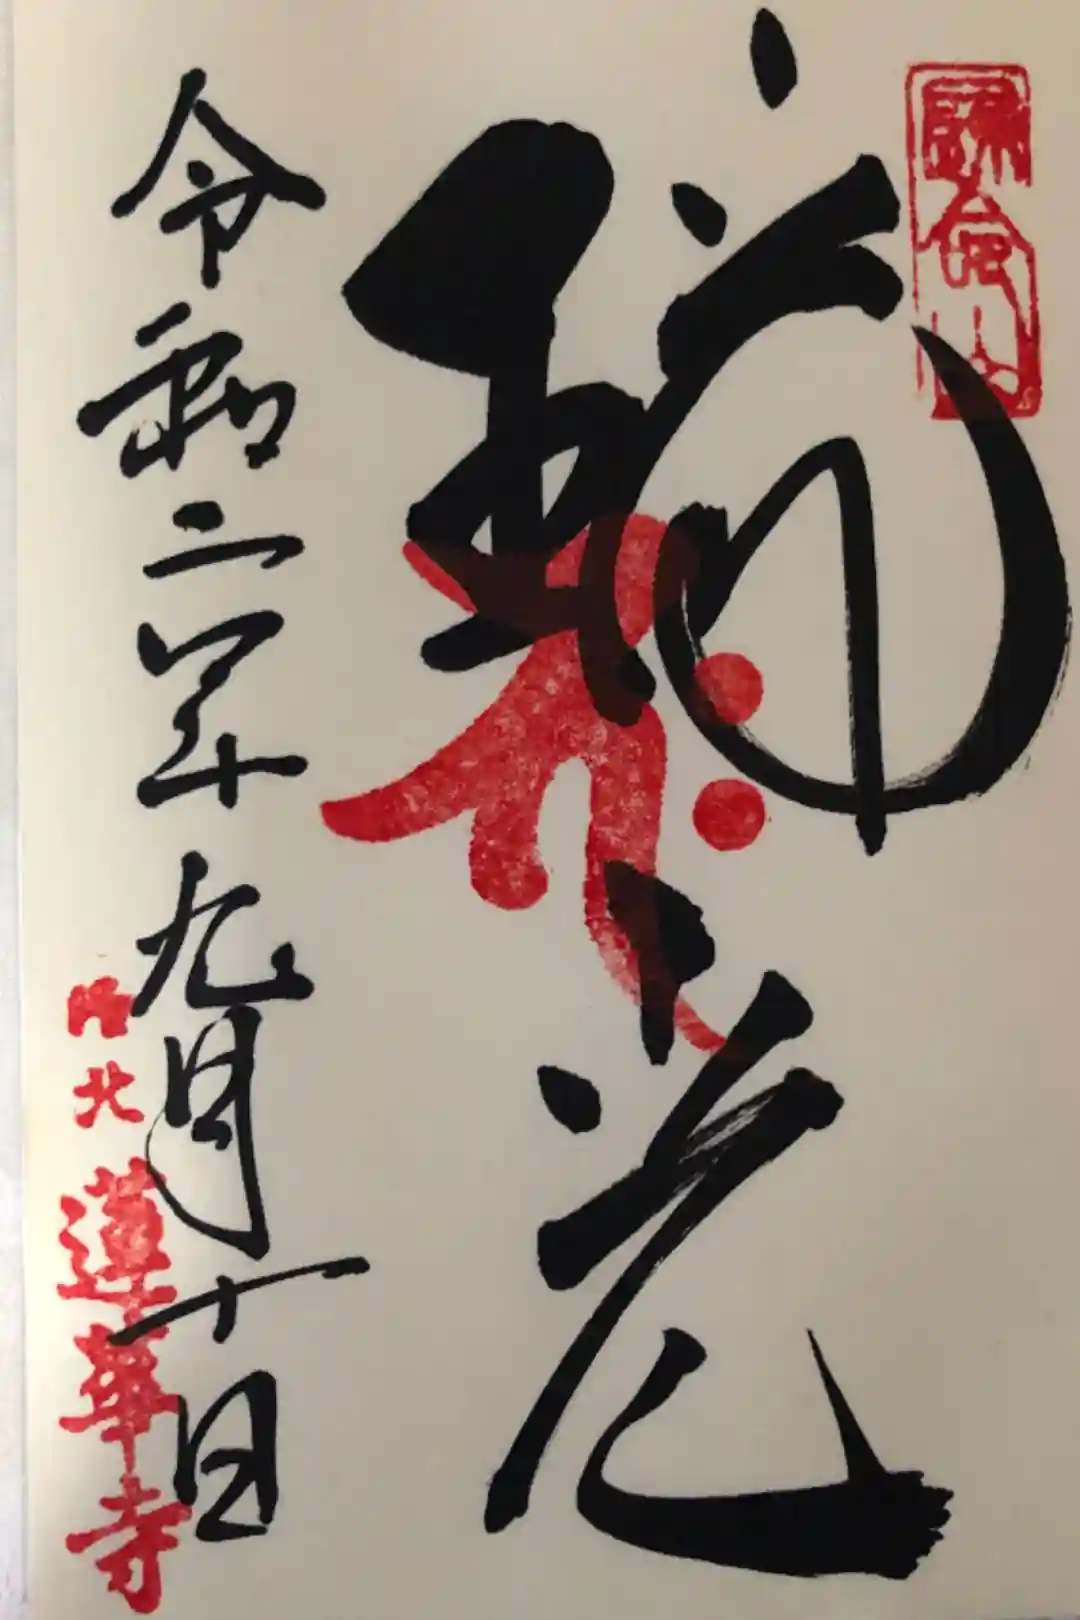 歸命山
瑞光
令和二年九月十日
洛北 蓮華寺